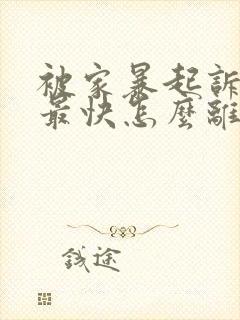 被家暴起訴
最快怎麼離
錢途